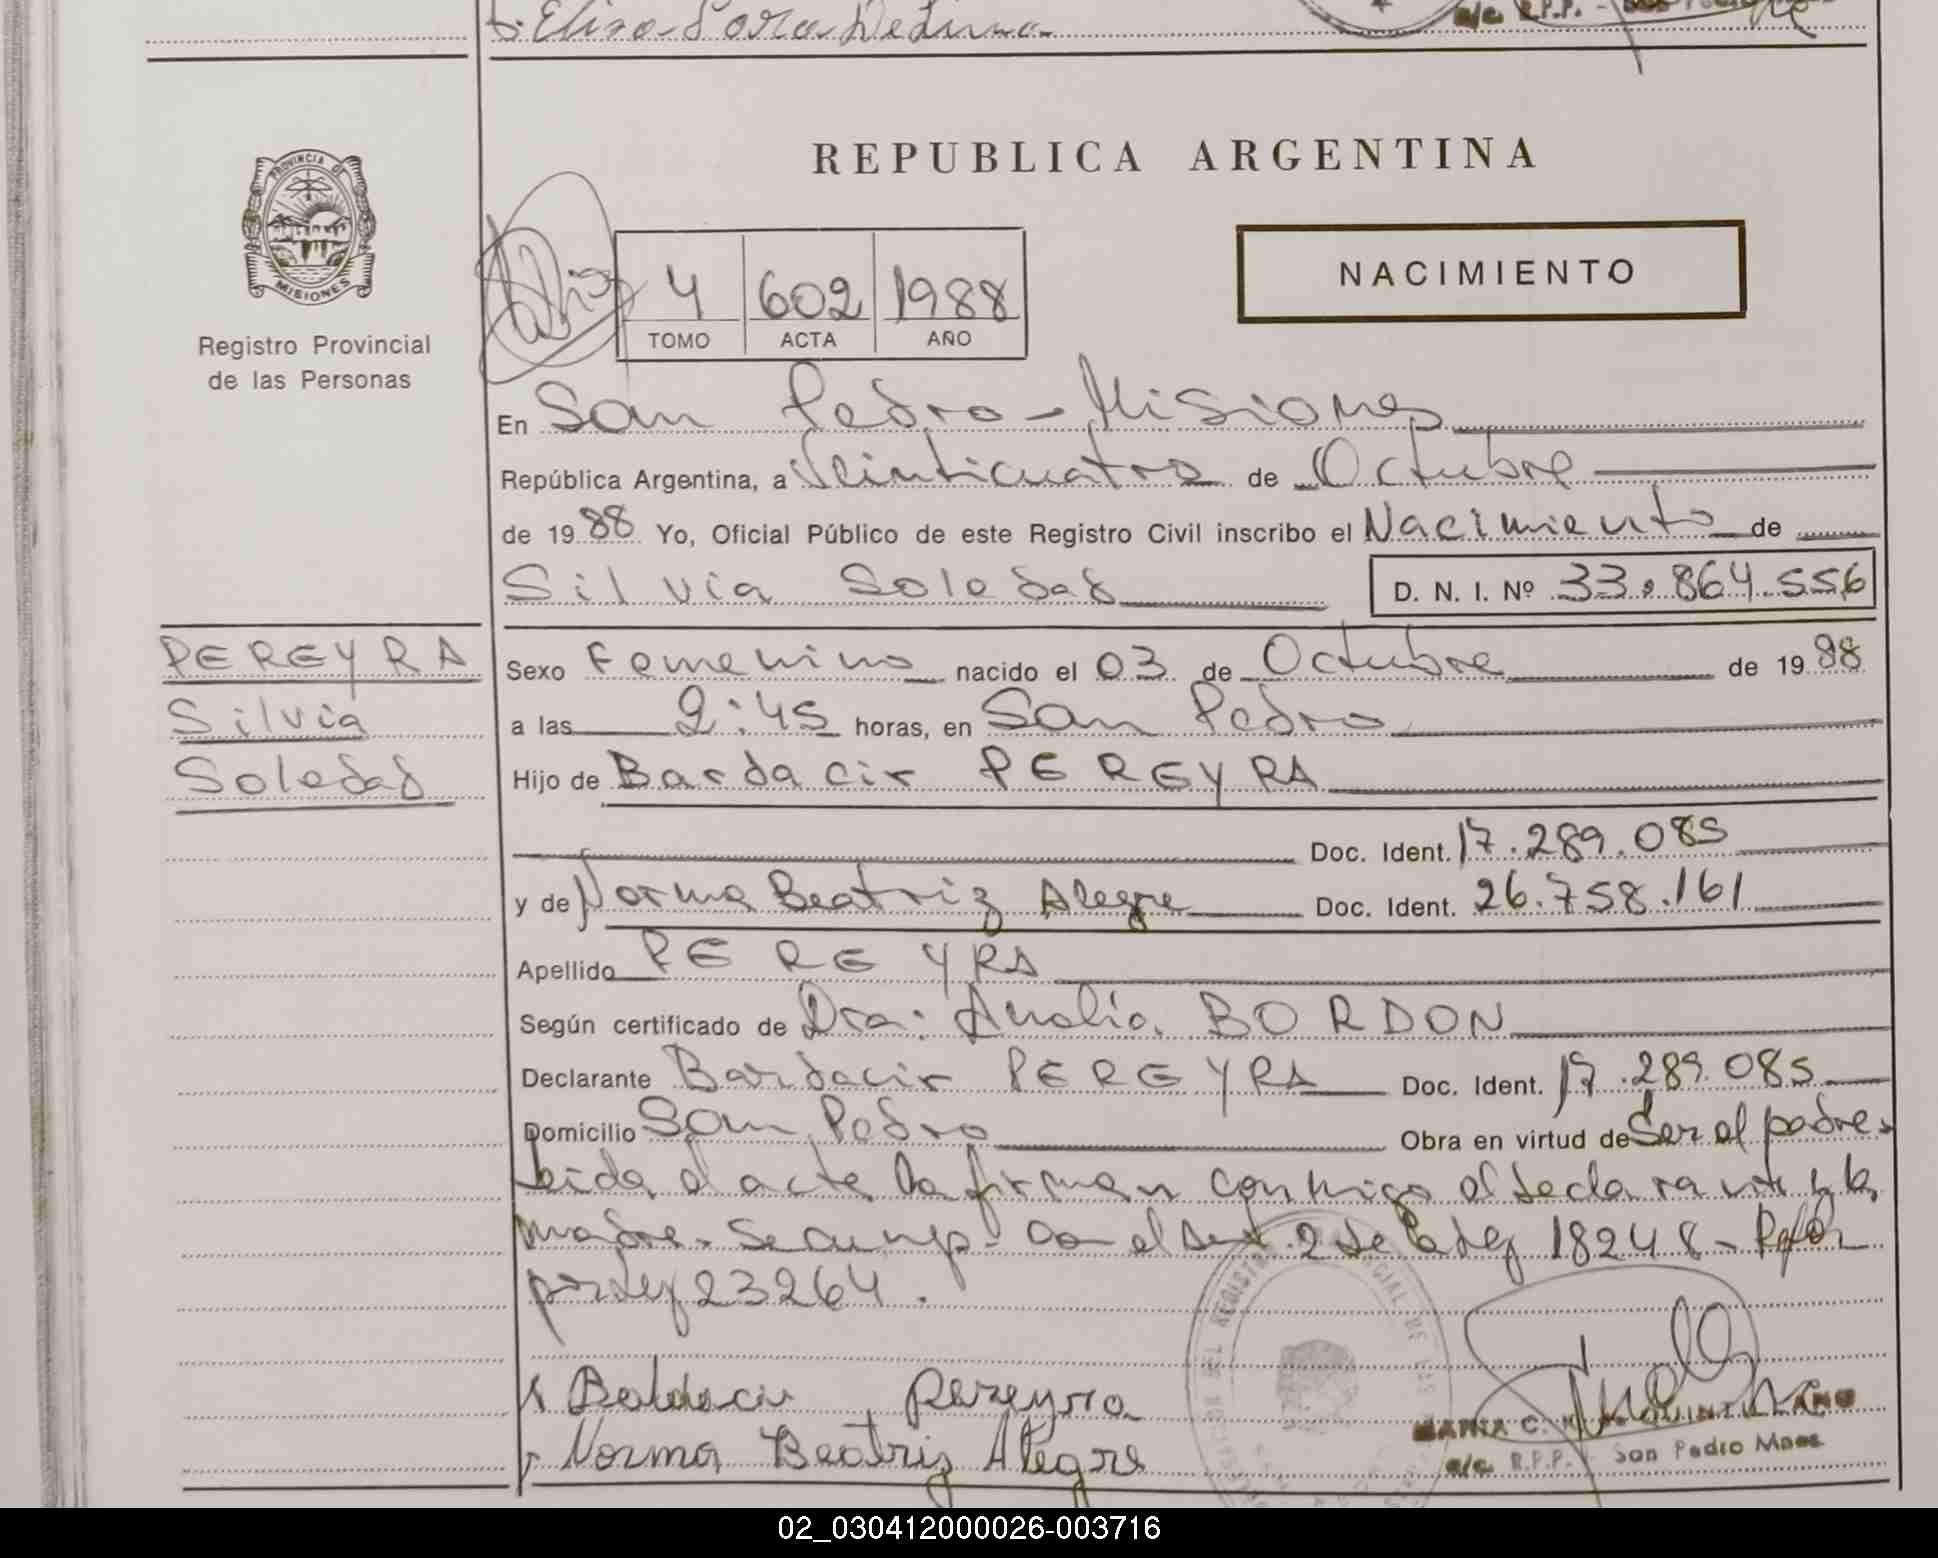 Elisa Sara De Lima
a/c. R.P.P. -
PROVINCIA DE
MISIONES
Registro Provincial
de las Personas
REPUBLICA ARGENTINA
4 602 1988
TOMO ACTA AÑO
NACIMIENTO
En San Pedro - Misiones
República Argentina, a Veinticuatro de Octubre
de 1988 Yo, Oficial Público de este Registro Civil inscribo el Nacimiento de
Silvia Soledad D. N. I. Nº 33.864.556
PEREYRA
Silvia
Soledad
Sexo Femenino nacido el 03 de Octubre de 1988
a las 2:45 horas, en San Pedro
Hijo de Bardacir PEREYRA
Doc. Ident. 17.289.085
y de Norma Beatriz Alegre Doc. Ident. 26.758.161
Apellido PEREYRA
Según certificado de Dra: Analía BORDON
Declarante Bardacir PEREYRA Doc. Ident. 17.289.085
Domicilio San Pedro Obra en virtud de Ser el padre.
Leida el acta la firman conmigo el declarante y la
madre. Se cump. con el art. 2 de la ley 18248 -
por ley 23264.
Baldacir Pereyra
Norma Beatriz Alegre
MARIA C. QUINTANO
a/c. R.P.P. San Pedro Mnes
02_030412000026-003716